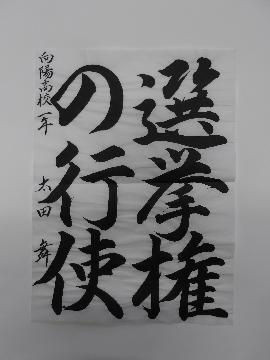 選挙権
の行使
向陽高校一年 太田 舞